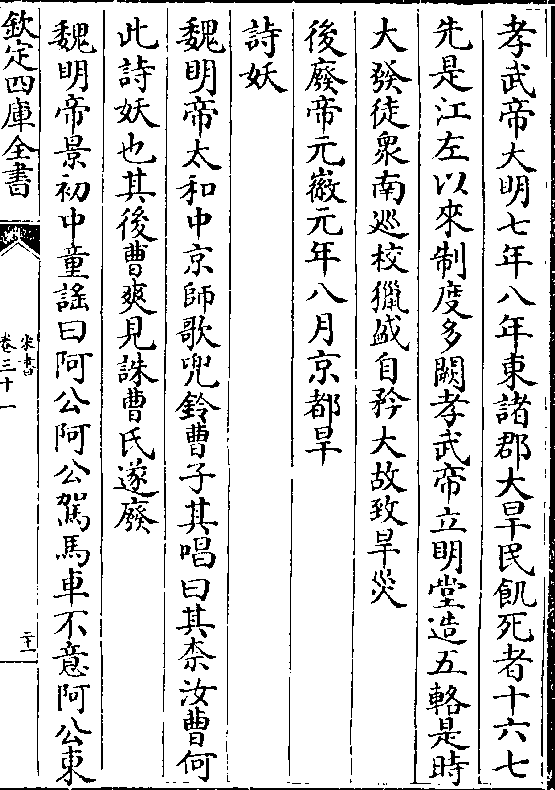 孝武帝大明七年八年東諸郡大旱民飢死者十六七
先是江左以來制度多闕孝武帝立明堂造五輅是時
大發徒衆南巡校獵盛自矜大故致旱災
後廢帝元徽元年八月京都旱
詩妖
魏明帝太和中京師歌兜鈴曹子其唱曰其柰汝曹何
此詩妖也其後曹爽見誅曹氏遂廢
魏明帝景初中童謠曰阿公阿公駕馬車不意阿公東
欽定四庫全書
宋書
卷三十一
二十一